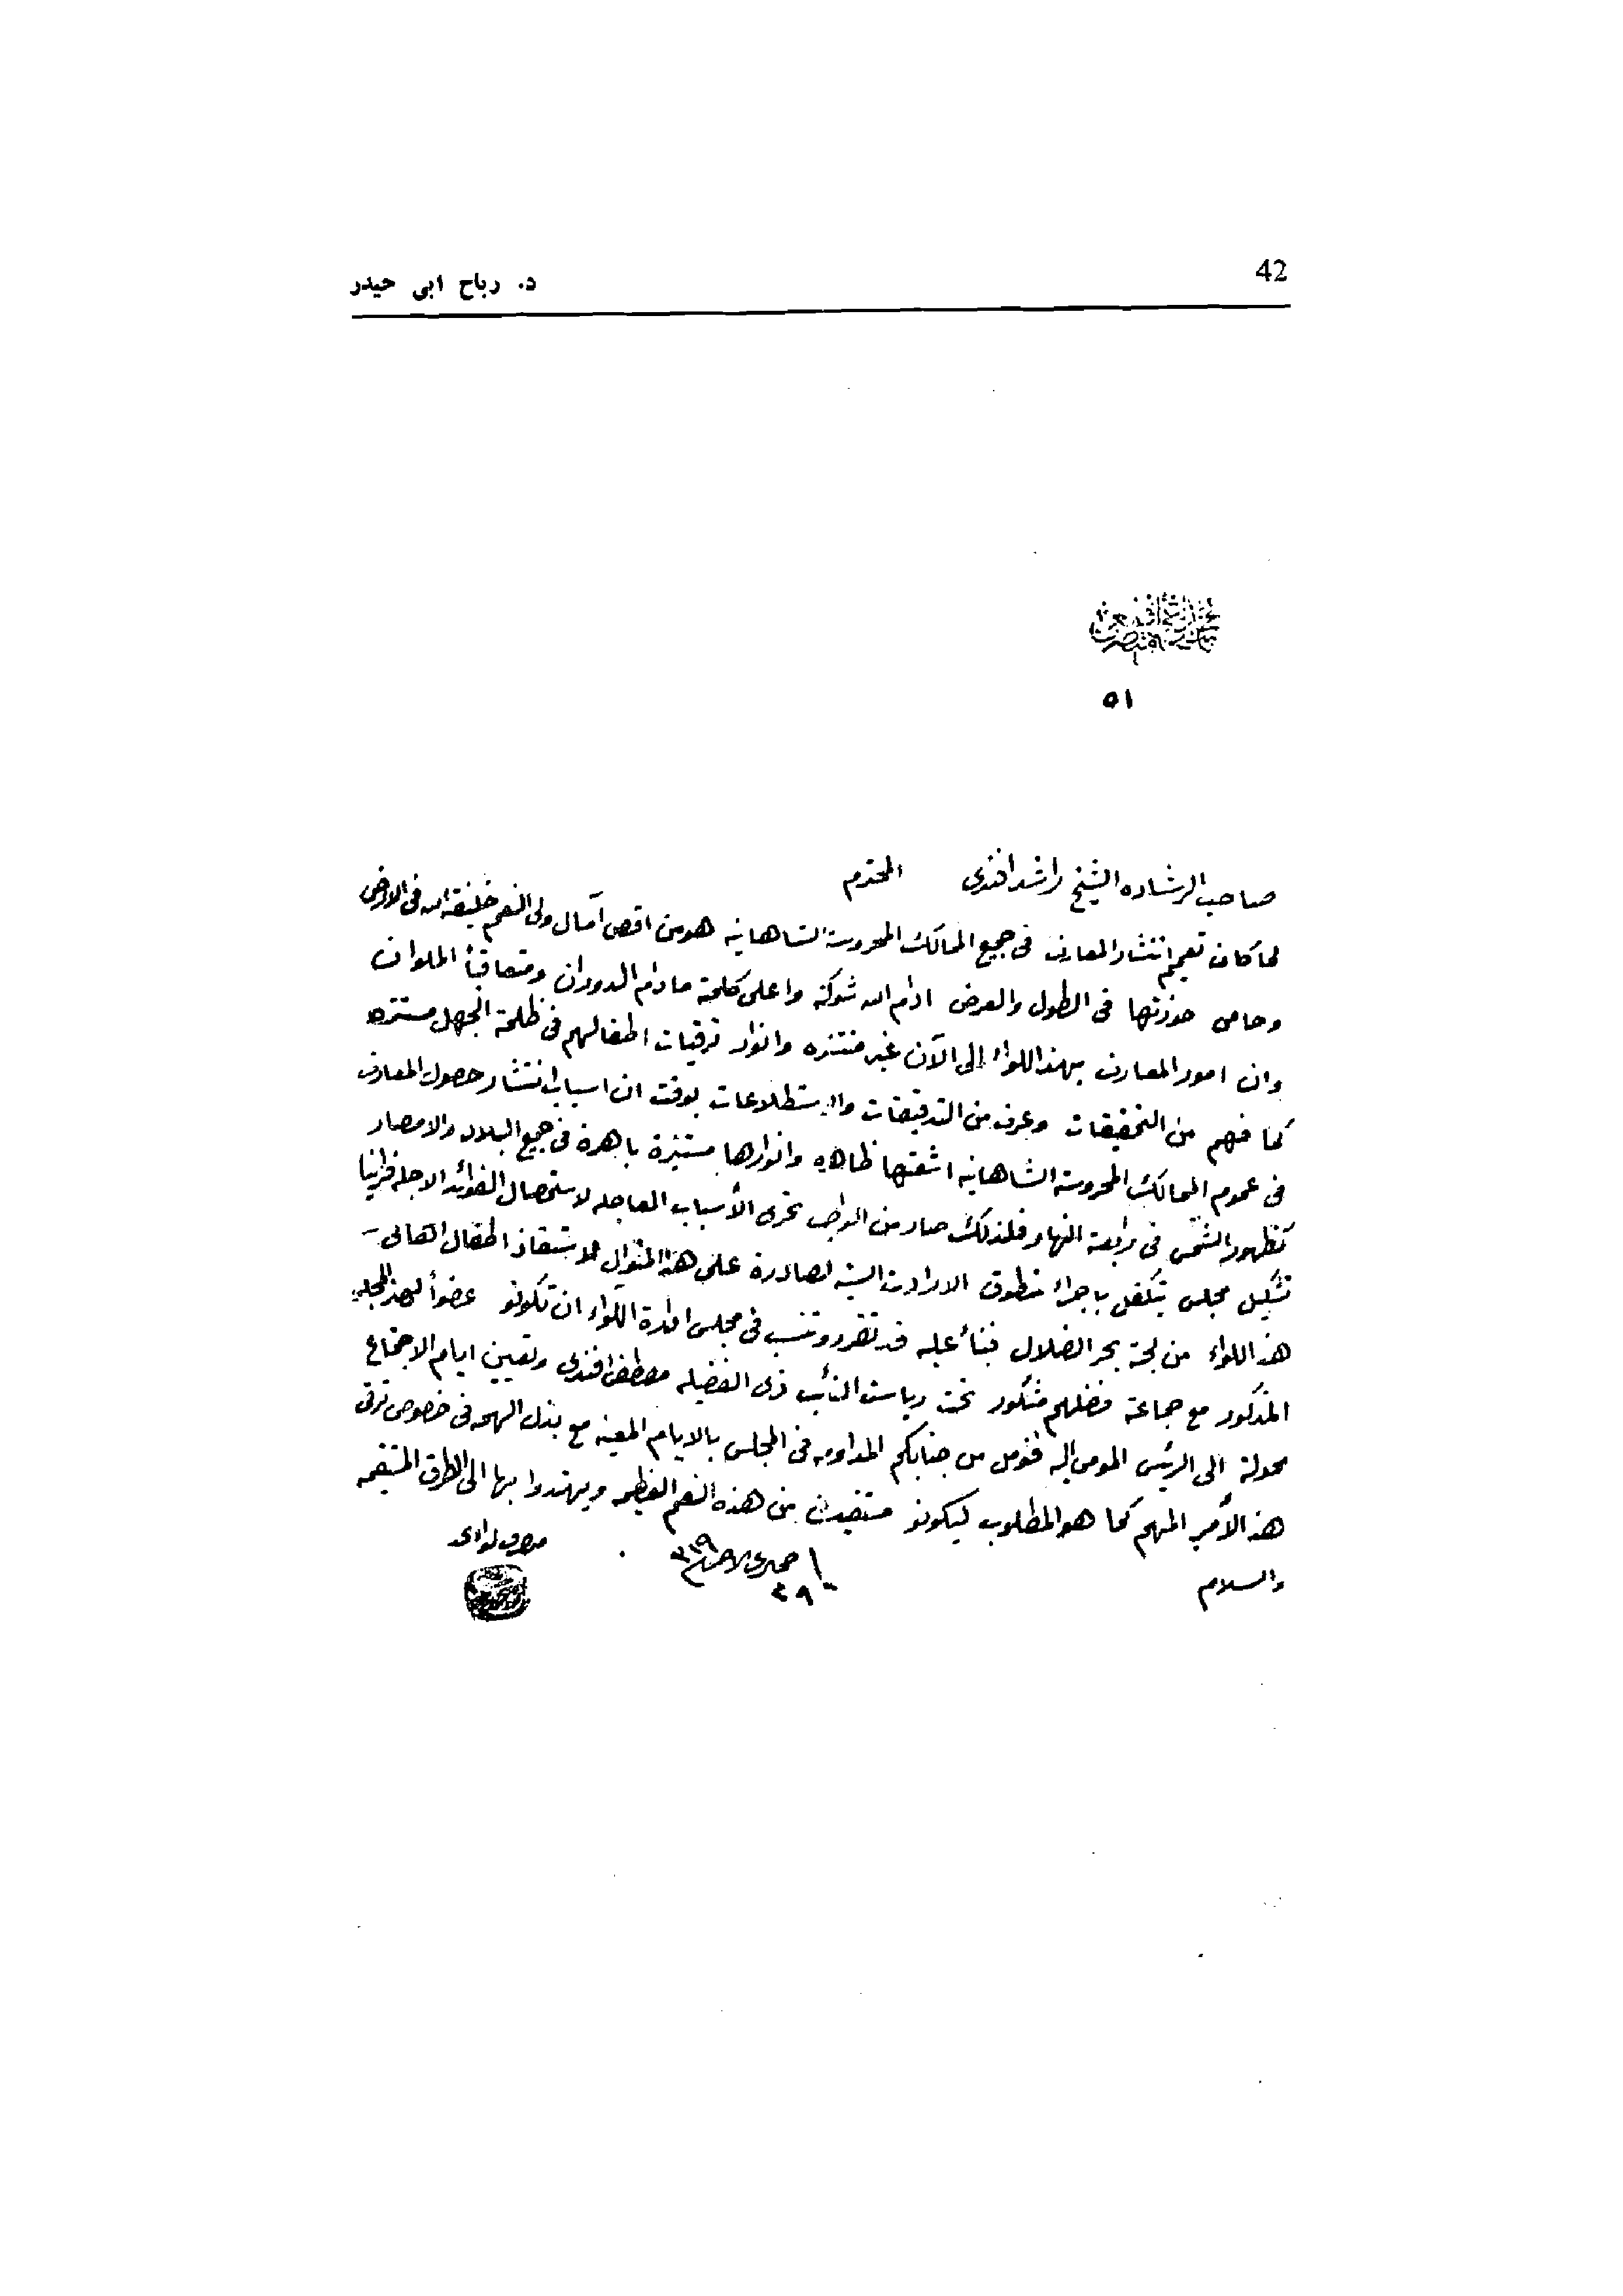 42
د. رباح ابي حيدر
٥١
صاحب الرشاده الشيخ راشد افندى المحترم
لما كان تعميم انتشار المعارف فى جميع الممالك المحروسة الشاهانيه هو من اقصى آمال ولى النعم خليفة الله فى الارض
وحامى حوزتها فى الطول والعرض ادام الله شوكته واعلى كلمته مادام الدوران ومتعاقباً الملوان
وان امور المعارف بهذا اللواء الى الآن غير منتشره وانوار ترقيات اطفالهم فى ظلمة الجهل مستتره
كما فهم من التحقيقات وعرف من التدقيقات والاستطلاعات بوقت ان اسباب انتشار حصول المعارف
فى عموم الممالك المحروسة الشاهانيه اشعتها ظاهره وانوارها مستنيرة باهرة فى جميع البلاد والامصار
كظهور الشمس فى رابعة النهار فلذلك صار من الواجب تحرى الأسباب العاجله لاستحصال الفوائد الاجله فرأينا
تشكيل مجلس يتكفل باجراء منطوق الارادات السنيه الصادرة على هذا المنوال لاستنقاذ اطفال اهالى
هذ اللواء من لجة بحر الضلال فبناء عليه قد تقرر وتنسب فى مجلس ادارة اللواء ان تكونو عضواً لهذ المجلس
المذكور مع جماعة فضلهم مشكور تحت رياسة النائب ذى الفضيله مصطفى افندى وتعيين ايام الاجتماع
محولة الى الرئيس المومى اليه فنومل من جنابكم المداومه فى المجلس بالايام المعينه مع بذل الهمه فى خصوص ترقى
هذ الأمر المهم كما هو المطلوب ليكونو مستفيدين من هذه النعم العظيمه ويهتدوا بها الى الطرق المستقيمه
والسلام
متصرف لواء